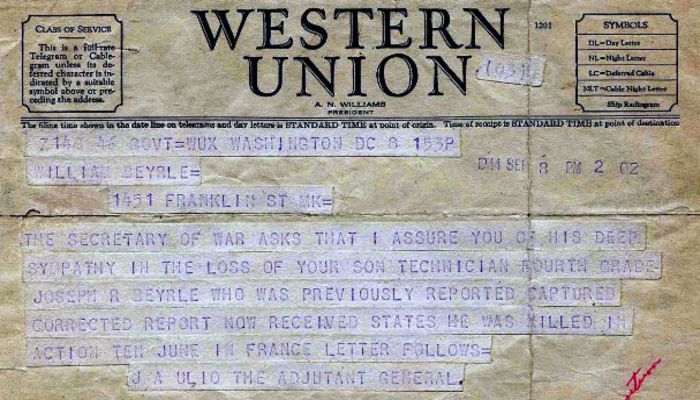 CLASS OF SERVICE
This is a full-rate
Telegram or Cable-
gram unless its de-
ferred character is in-
dicated by a suitable
symbol above or pre-
ceding the address.
WESTERN
UNION
A. N. WILLIAMS
PRESIDENT
1201
SYMBOLS
DL=Day Letter
NL=Night Letter
LC=Deferred Cable
NLT=Cable Night Letter
Ship Radiogram
The filing time shown in the date line on telegrams and day letters is STANDARD TIME at point of origin. Time of receipt is STANDARD TIME at point of destination
46 GOVT=WUX WASHINGTON DC 8 153P
WILLIAM BEYRLE=
8 PM 2 02
1451 FRANKLIN ST MK=
THE SECRETARY OF WAR ASKS THAT I ASSURE YOU OF HIS DEEP
SYMPATHY IN THE LOSS OF YOUR SON TECHNICIAN FOURTH GRADE
JOSEPH R BEYRLE WHO WAS PREVIOUSLY REPORTED CAPTURED
CORRECTED REPORT NOW RECEIVED STATES HE WAS KILLED IN
ACTION TEN JUNE IN FRANCE LETTER FOLLOWS=
J A ULIO THE ADJUTANT GENERAL.